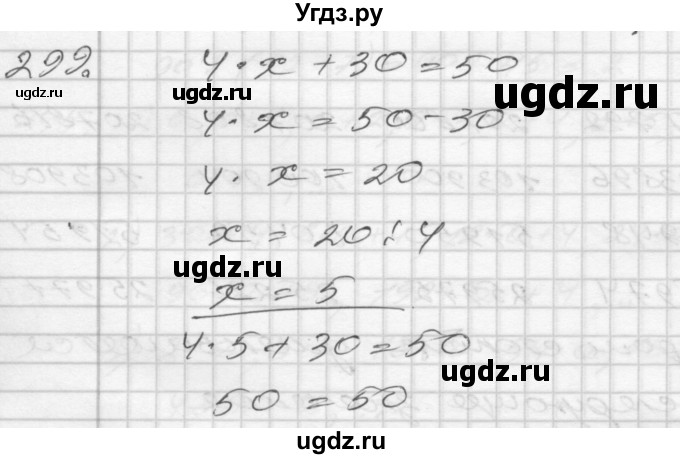 Угдз.ру
299. 4 · x + 30 = 50
ugdz.ru ugdz.ru ugdz.ru
4 · x = 50 - 30
4 · x = 20
x = 20 : 4
ugdz.ru
x = 5
4 · 5 + 30 = 50
ugdz.ru
50 = 50
ugdz.ru
ugdz.ru